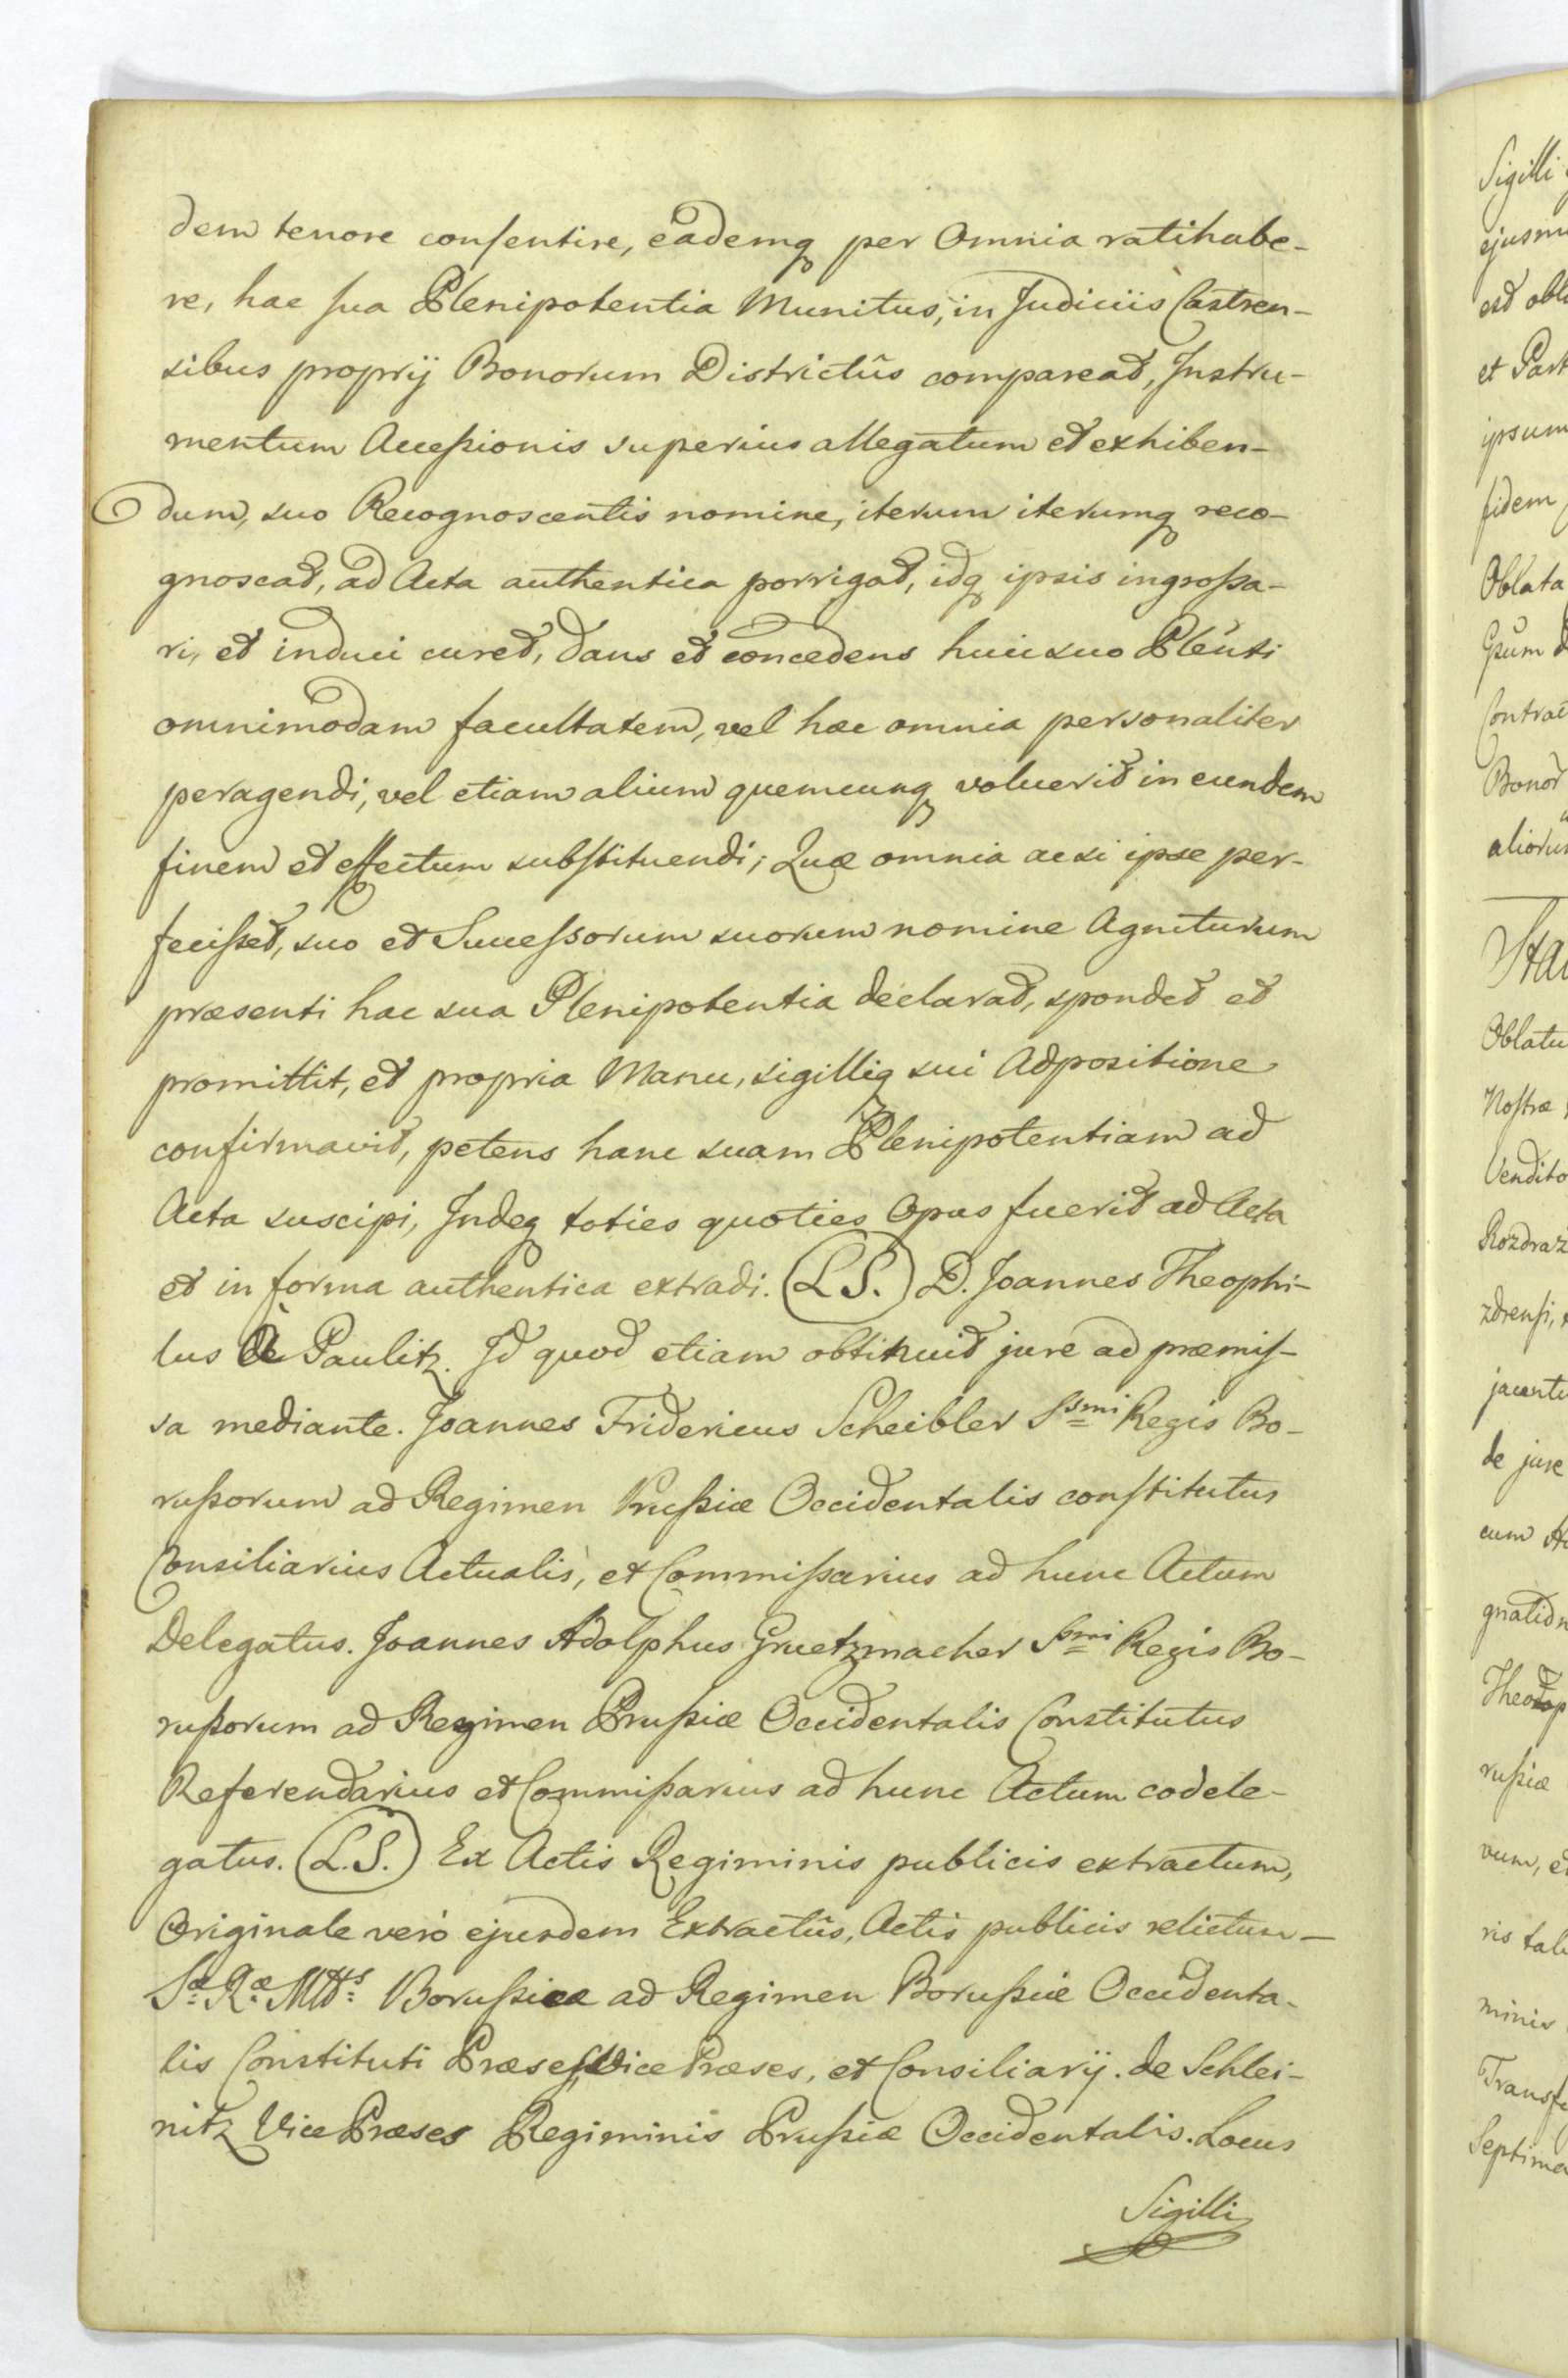 dem tenore consentire, eademq per Omnia ratihabe-
re, hac sua Plenipotentia Munitus, in Judiciis Castren-
sibus proprij Bonorum Districtûs compareat, Instru-
mentum Accessionis superius allegatum et exhiben-
dum, suo Recognoscentis nomine, iterum iterumq reco-
gnoscat, ad Acta authentica porrigat, idq ipsis ingrossa-
ri, et induci curet, dans et concedens huic suo Plenti
omnimodam facultatem, vel hæc omnia personaliter
peragendi, vel etiam alium quemcunq voluerit in eundem
finem et effectum substituendi; Quæ omnia acsi ipse per-
fecisset, suo et Successorum suorum nomine Agniturum
præsenti hac sua Plenipotentia declarat, spondet et
promittit, et propria Manu, sigilliq sui Adpositione
confirmavit, petens hanc suam Plenipotentiam ad
Acta suscipi, Indeq toties quoties Opus fuerit ad Acta
et in forma authentica extradi. (L S.) D. Joannes Theophi-
lus de Paulitz. Id quod etiam obtinuit jure ad præmis-
sa mediante. Joannes Fridericus Scheibler Ssmi Regis Bo-
russorum ad Regimen Prussiæ Occidentalis constitutus
Consiliarius Actualis, et Commissarius ad hunc Actum
Delegatus. Joannes Adolphus Gruetzmacher Ssmi Regis Bo-
russorum ad Regimen Prussiæ Occidentalis Constitutus
Referendarius et Commissarius ad hunc Actum codele-
gatus. (L.S.) Ex Actis Regiminis publicis extractum,
Originale verò ejusdem Extractûs, Actis publicis relictum –
Sæ Ræ Mtts Borussicæ ad Regimen Borussiæ Occidenta-
lis Constituti Præses, Vice Præses, et Consiliarij. de Schlei-
nitz Vice Præses Regiminis Prussiæ Occidentalis. Locus
Sigilli
Sigilli
est
et
ipsum
fidem
Oblata
Gsum
Bonor
Oblatu
Nostræ
Vendito
Rozdraz
zdrensi,
de jure
cum
russiæ
vum, et
ris tali
minis
Septima